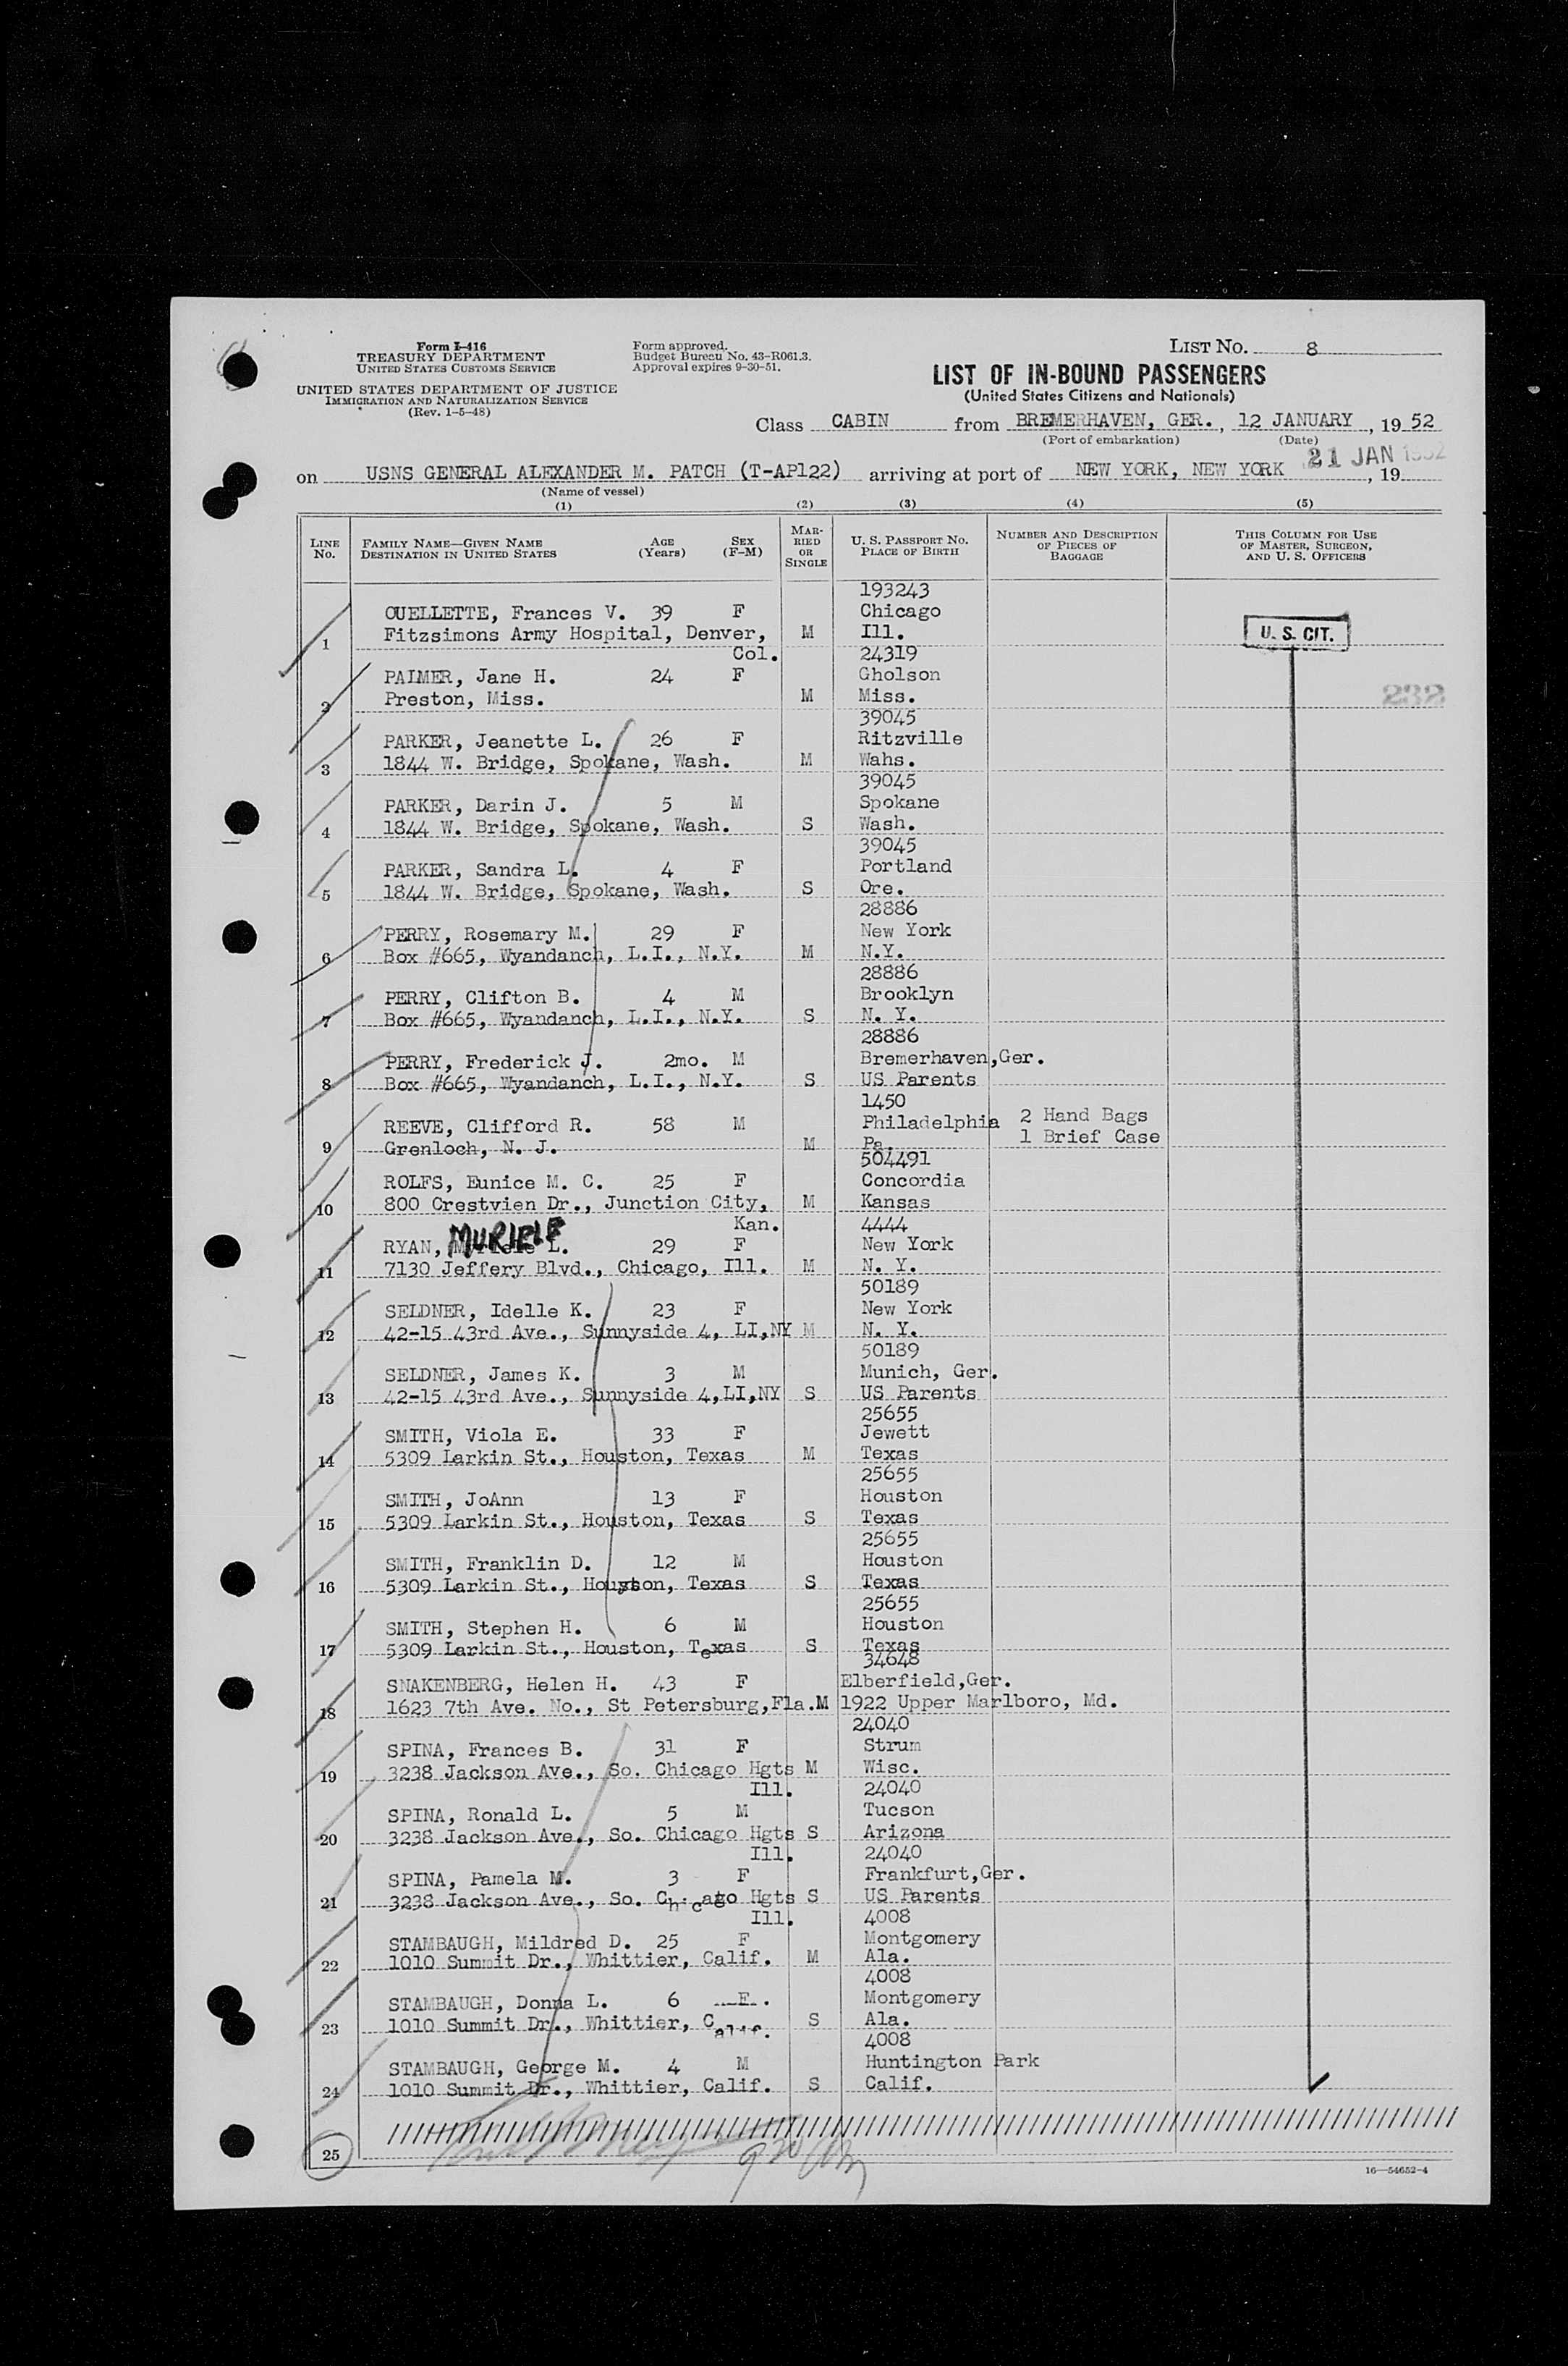 Form I-416
TREASURY DEPARTMENT
UNITED STATES CUSTOMS SERVICE
UNITED STATES DEPARTMENT OF JUSTICE
IMMIGRATION AND NATURALIZATION SERVICE
(Rev. 1-5-48)
Form approved.
Budget Bureau No. 43-R061.3.
Approval expires 9-30-51.
LIST NO. 8
LIST OF IN-BOUND PASSENGERS
(United States Citizens and Nationals)
Class CABIN from BREMERHAVEN, GER., 12 JANUARY, 19 52
(Port of embarkation) (Date)
21 JAN 1952
on USNS GENERAL ALEXANDER M. PATCH (T-AP122) arriving at port of NEW YORK, NEW YORK, 19
(Name of vessel)
(1) (2) (3) (4) (5)
LINE No. FAMILY NAME—GIVEN NAME DESTINATION IN UNITED STATES AGE (Years) SEX (F-M) MARRIED OR SINGLE U. S. PASSPORT NO. PLACE OF BIRTH NUMBER AND DESCRIPTION OF PIECES OF BAGGAGE THIS COLUMN FOR USE OF MASTER, SURGEON, AND U. S. OFFICERS
193243
OUELLETTE, Frances V. 39 F Chicago
1 Fitzsimons Army Hospital, Denver, M Ill. U. S. CIT.
Col. 24319
PALMER, Jane H. 24 F Gholson
2 Preston, Miss. M Miss. 232
39045
PARKER, Jeanette L. 26 F Ritzville
3 1844 W. Bridge, Spokane, Wash. M Wahs.
39045
PARKER, Darin J. 5 M Spokane
4 1844 W. Bridge, Spokane, Wash. S Wash.
39045
PARKER, Sandra L. 4 F Portland
5 1844 W. Bridge, Spokane, Wash. S Ore.
28886
PERRY, Rosemary M. 29 F New York
6 Box #665, Wyandanch, L.I., N.Y. M N.Y.
28886
PERRY, Clifton B. 4 M Brooklyn
7 Box #665, Wyandanch, L.I., N.Y. S N. Y.
28886
PERRY, Frederick J. 2mo. M Bremerhaven,Ger.
8 Box #665, Wyandanch, L.I., N.Y. S US Parents
1450
REEVE, Clifford R. 58 M Philadelphia 2 Hand Bags
9 Grenloch, N. J. M Pa. 1 Brief Case
504491
ROLFS, Eunice M. C. 25 F Concordia
10 800 Crestvien Dr., Junction City, M Kansas
Kan. 4444
RYAN, MURIELE L. 29 F New York
11 7130 Jeffery Blvd., Chicago, Ill. M N. Y.
50189
SELDNER, Idelle K. 23 F New York
12 42-15 43rd Ave., Sunnyside 4, LI,NY M N. Y.
50189
SELDNER, James K. 3 M Munich, Ger.
13 42-15 43rd Ave., Sunnyside 4,LI,NY S US Parents
25655
SMITH, Viola E. 33 F Jewett
14 5309 Larkin St., Houston, Texas M Texas
25655
SMITH, JoAnn 13 F Houston
15 5309 Larkin St., Houston, Texas S Texas
25655
SMITH, Franklin D. 12 M Houston
16 5309 Larkin St., Houston, Texas S Texas
25655
SMITH, Stephen H. 6 M Houston
17 5309 Larkin St., Houston, Texas S Texas
34648
SNAKENBERG, Helen H. 43 F Elberfield,Ger.
18 1623 7th Ave. No., St Petersburg,Fla. M 1922 Upper Marlboro, Md.
24040
SPINA, Frances B. 31 F Strum
19 3238 Jackson Ave., So. Chicago Hgts M Wisc.
Ill. 24040
SPINA, Ronald L. 5 M Tucson
20 3238 Jackson Ave., So. Chicago Hgts S Arizona
Ill. 24040
SPINA, Pamela M. 3 F Frankfurt,Ger.
21 3238 Jackson Ave., So. Chicago Hgts S US Parents
Ill. 4008
STAMBAUGH, Mildred D. 25 F Montgomery
22 1010 Summit Dr., Whittier, Calif. M Ala.
4008
STAMBAUGH, Donna L. 6 F. Montgomery
23 1010 Summit Dr., Whittier, Calif. S Ala.
4008
STAMBAUGH, George M. 4 M Huntington Park
24 1010 Summit Dr., Whittier, Calif. S Calif.
25
16—54652-4